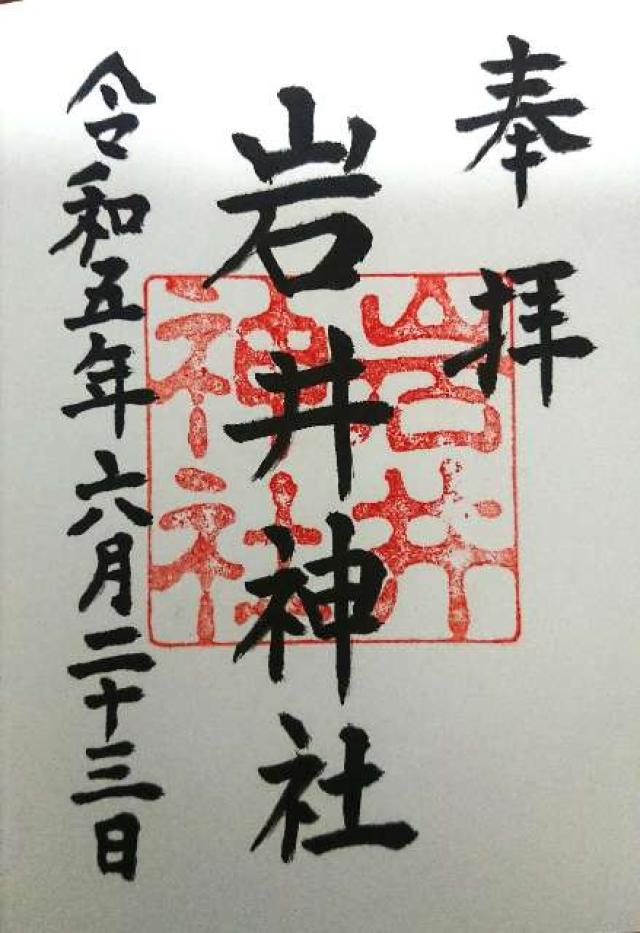 奉拝
岩井神社
令和五年六月二十三日
岩井
神社